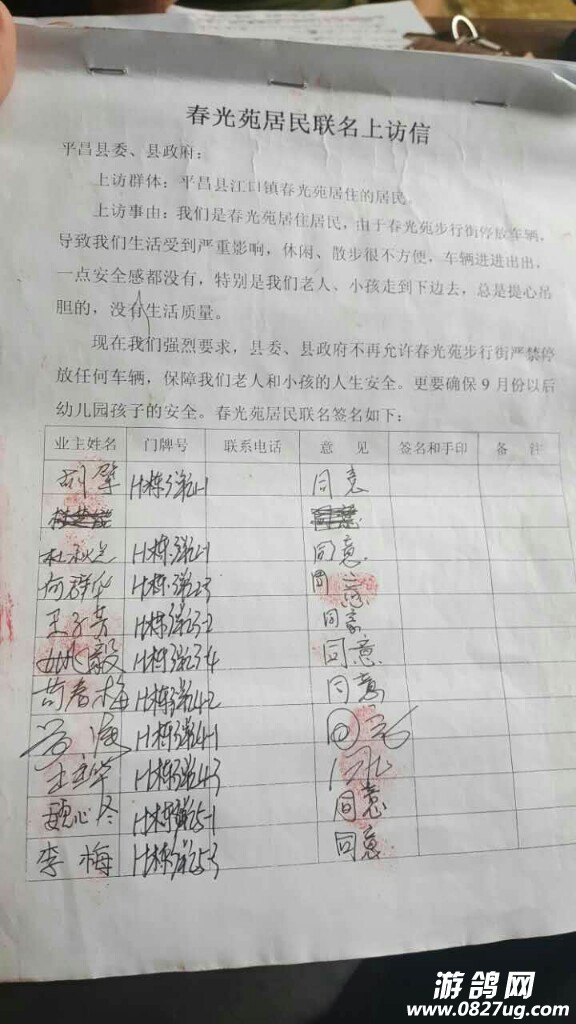 春光苑居民联名上访信
平昌县委、县政府：
上访群体：平昌县江口镇春光苑居住的居民.
上访事由：我们是春光苑居住居民，由于春光苑步行街停放车辆，
导致我们生活受到严重影响，休闲、散步很不方便，车辆进进出出，
一点安全感都没有，特别是我们老人、小孩走到下边去，总是提心吊
胆的，没有生活质量。
现在我们强烈要求，县委、县政府不再允许春光苑步行街严禁停
放任何车辆，保障我们老人和小孩的人生安全。更要确保9月份以后
幼儿园孩子的安全。春光苑居民联名签名如下：
业主姓名 门牌号 联系电话 意 见 签名和手印 备 注
H栋 同意
H栋 同意
何 H栋 同意
王 H栋 3-2 同意
姚毅 H栋 3-4 同意
苟春梅 H栋 4-2 同意
H栋 4-1 同意
王 H栋 4-3
H栋 5-1 同意
李梅 H栋 5-3 同意
游鸽网
www.0827ug.com